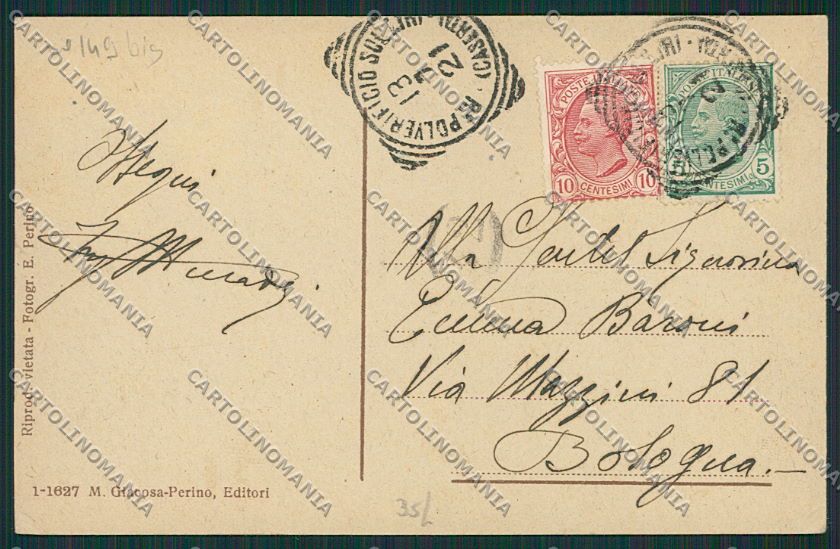 9149 bis
Ossequi
Riprod. vietata - Fotogr. E. Perino
1-1627 M. Giacosa-Perino, Editori
35/
Rº POLVERIFICIO SUL
(CASERTA)
13
21
POSTE
10 CENTESIMI 10
POSTE ITALIANE
5 CENTESIMI 5
Alla Gentil Signorina
Emma Baroni
Via Mazzini 81
Bologna.
CARTOLINOMANIA